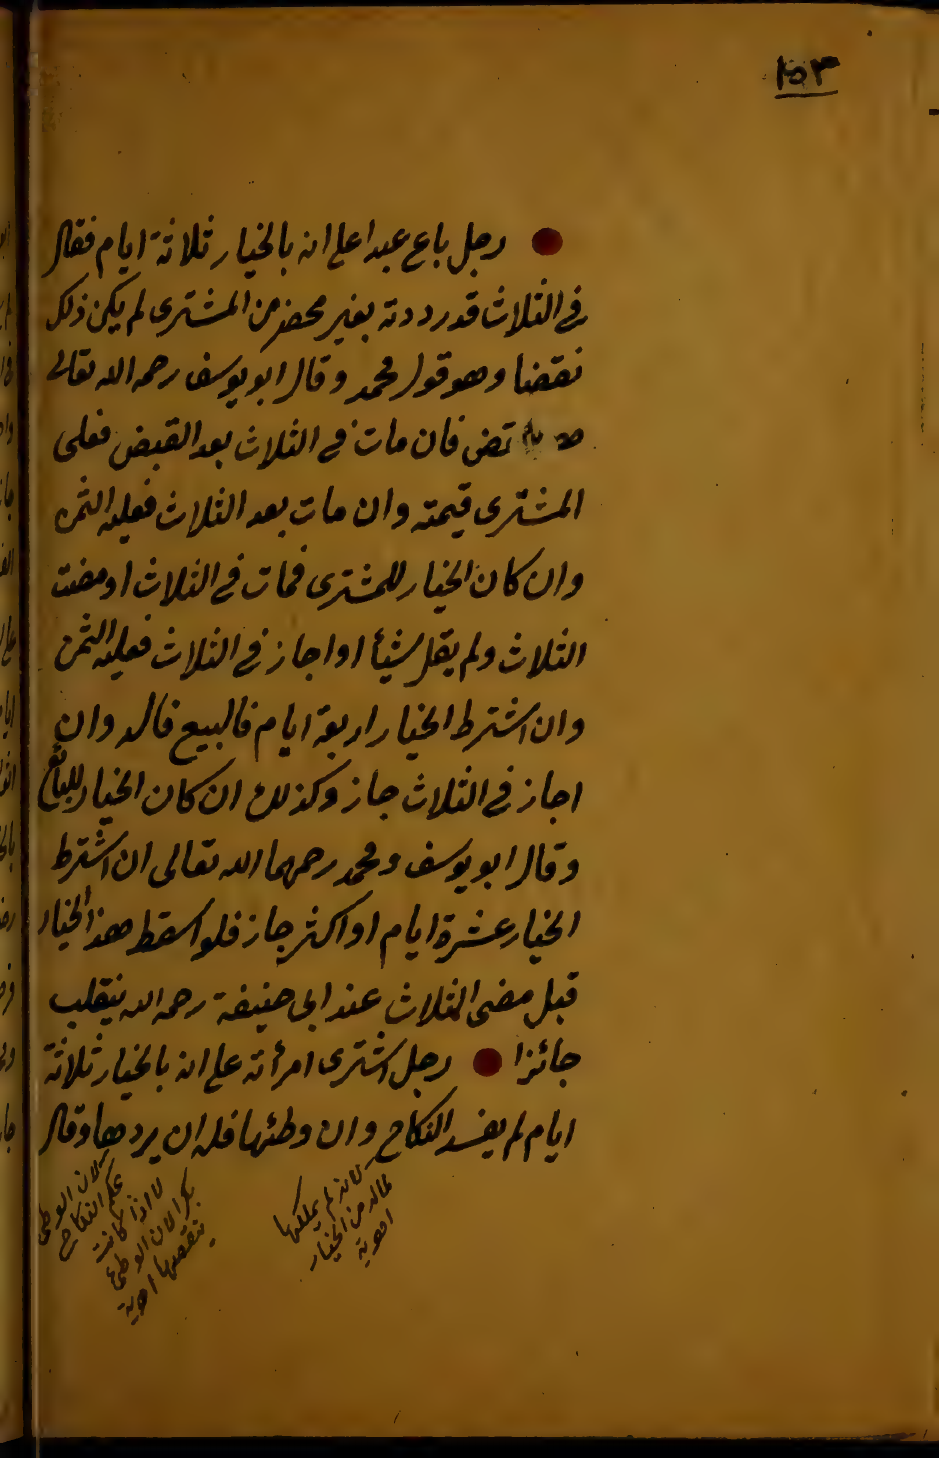 ١٥٣
رجل باع عبدا على انه بالخيار ثلاثة ايام فقال
في الثلاث قد رددته بغير محضر من المشترى لم يكن ذلك
نقضا وهو قول محمد وقال ابو يوسف رحمه الله تعالى
نقض فان مات في الثلاث بعد القبض فعلى
المشترى قيمته وان مات بعد الثلاث فعليه الثمن
وان كان الخيار للمشترى فمات في الثلاث او مضت
الثلاث ولم يقل شيأ او اجاز في الثلاث فعليه الثمن
وان اشترط الخيار اربعة ايام فالبيع فاسد وان
اجاز في الثلاث جاز وكذلك ان كان الخيار للبائع
وقال ابو يوسف ومحمد رحمهما الله تعالى ان اشترط
الخيار عشرة ايام او اكثر جاز فلو اسقط هذا الخيار
قبل مضى الثلاث عند ابى حنيفة رحمه الله ينقلب
جائزا رجل اشترى امرأته على انه بالخيار ثلاثة
ايام لم يفسد النكاح وان وطئها فله ان يردها وقال
لانه لم يملكها
لماله من الخيار
لان الوطئ
بحكم النكاح
لا اذا كانت
بكرا لان الوطئ
ينقصها